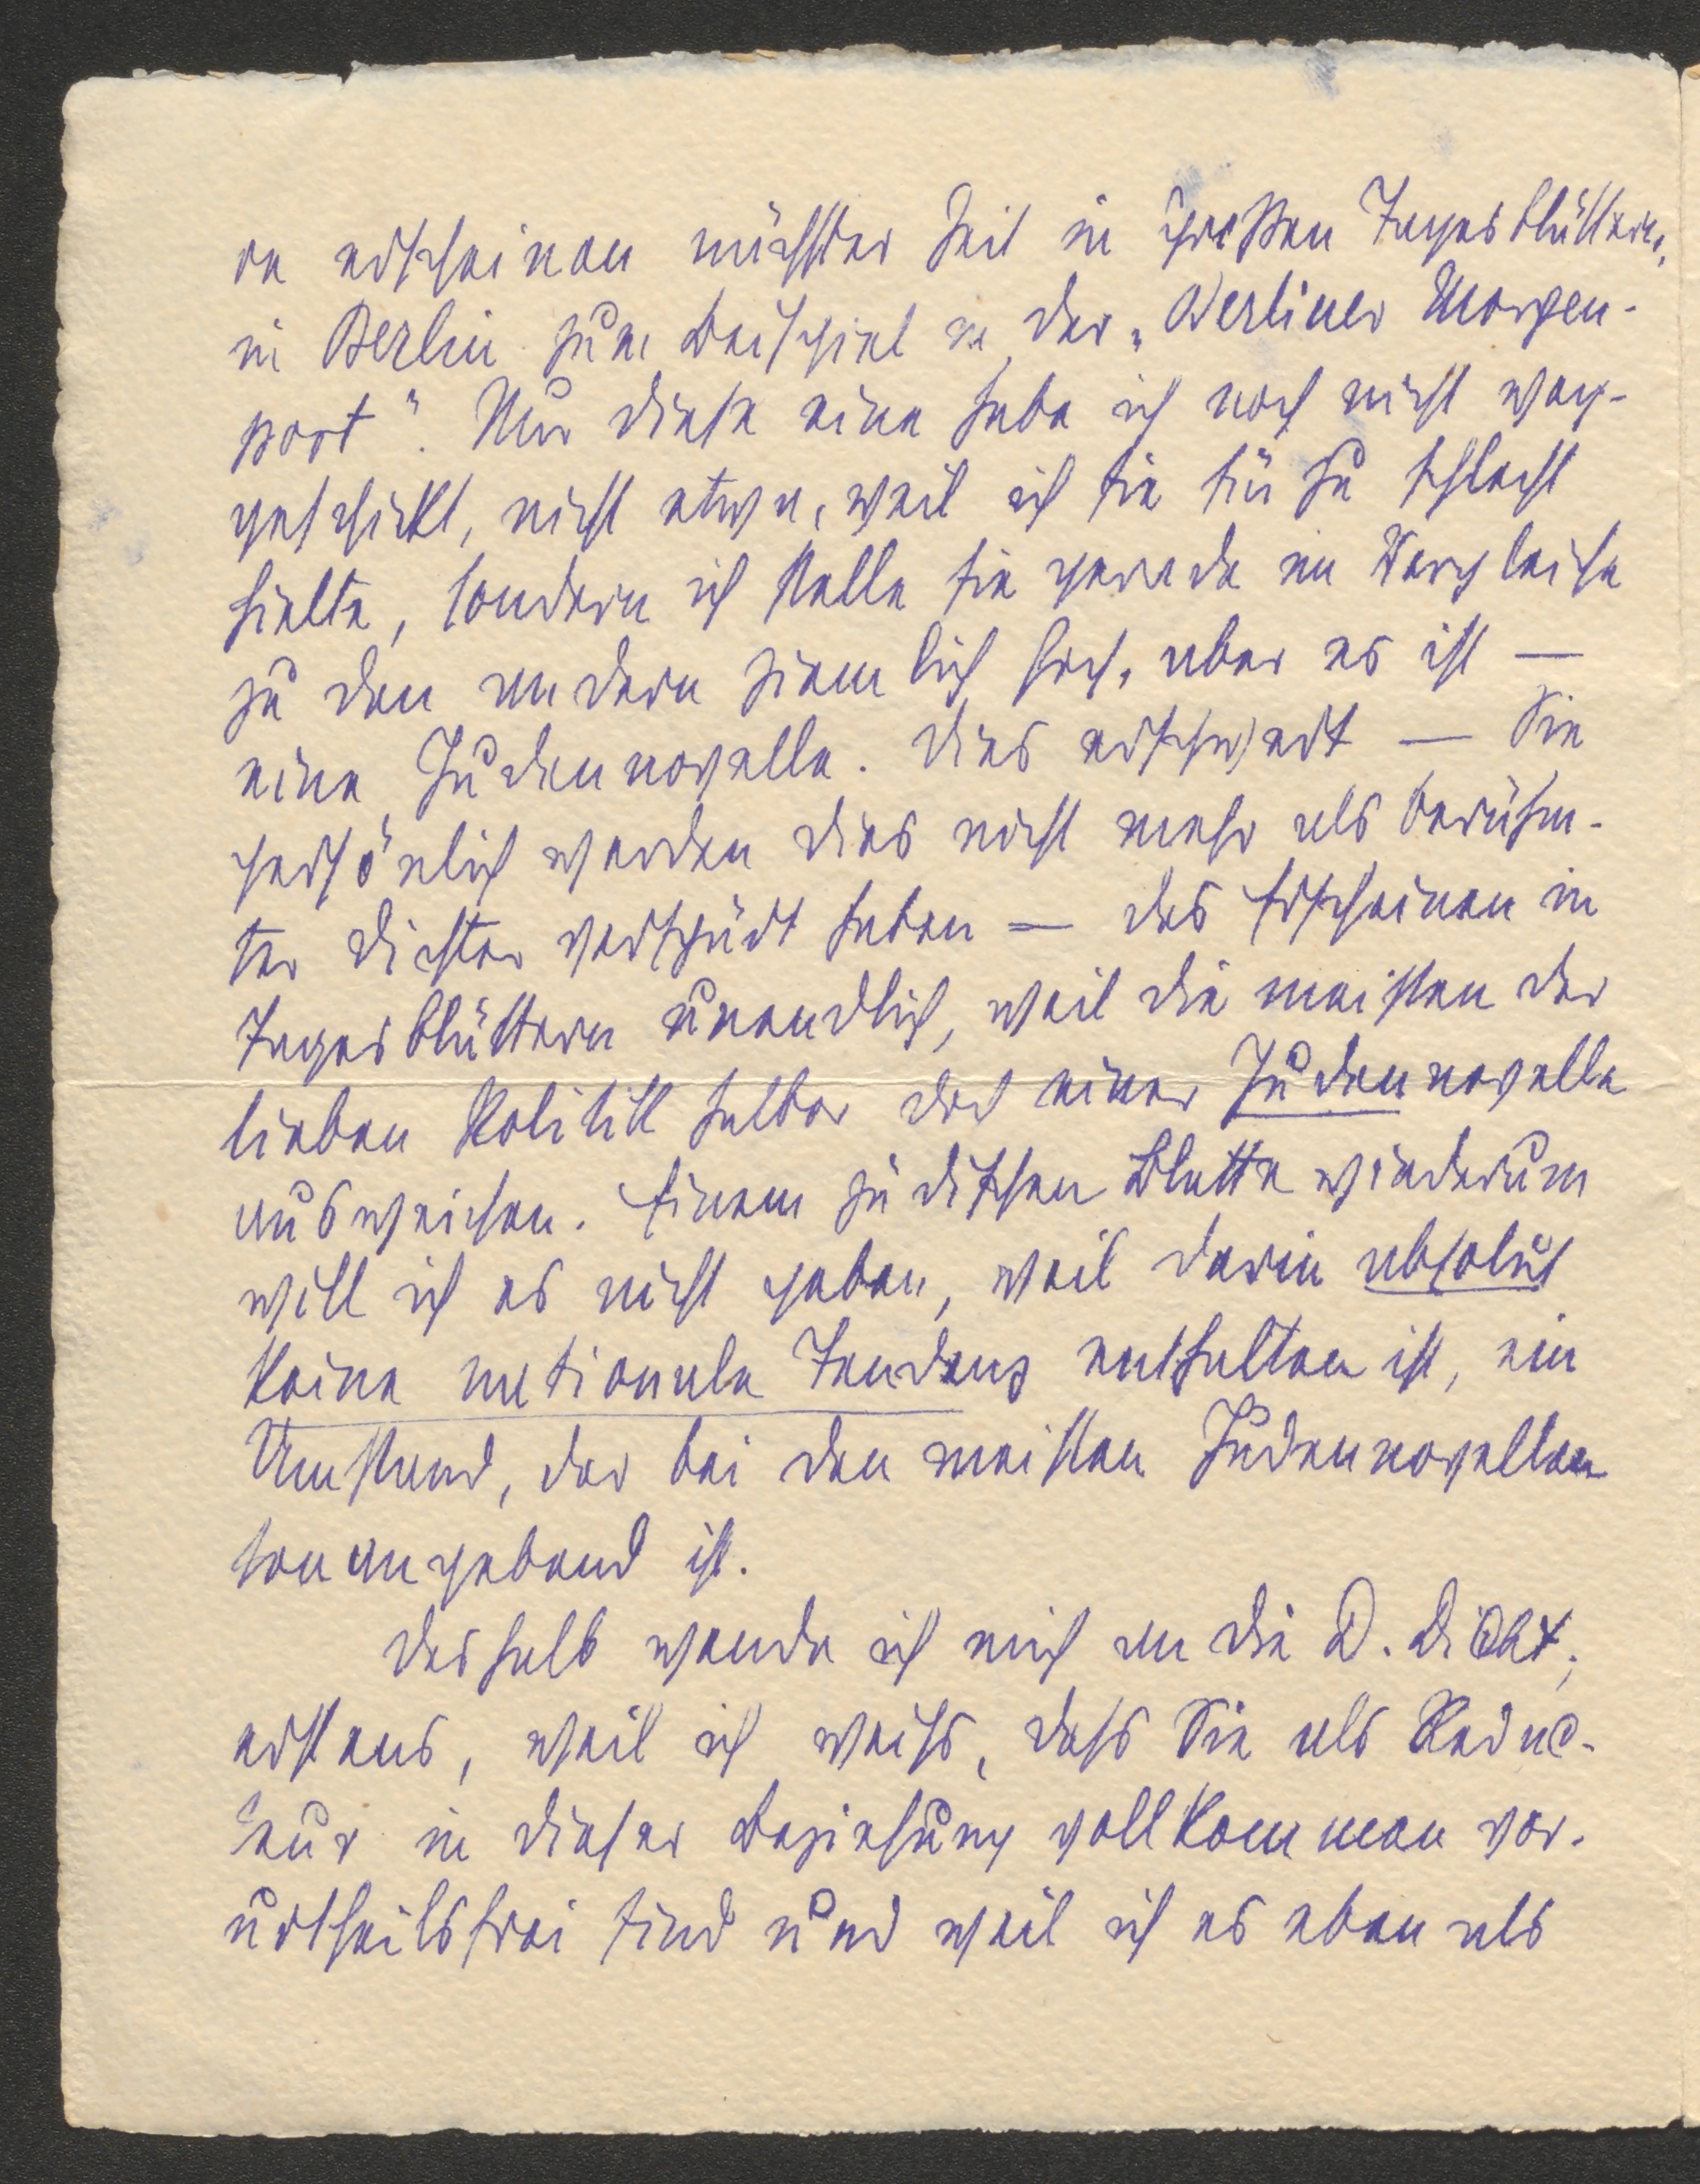 re erscheinen nächster Zeit in großen Tagesblättern,
in Berlin zum Beispiel in der „Berliner Morgen-
post“. Nur diese eine habe ich noch nicht weg-
geschickt, nicht etwa, weil ich sie für zu schlecht
hielte, sondern ich stelle sie gerade im Vergleiche
zu den andern ziemlich hoch, aber es ist —
eine Judennovelle. Dies erschwert — Sie
persönlich werden dies nicht mehr als berühm-
ter Dichter verspürt haben — das Erscheinen in
Tagesblättern unendlich, weil die meisten der
lieben Politik halber der einer Judennovelle
ausweichen. Einem jüdischen Blatte wiederum
will ich es nicht geben, weil darin absolut
keine nationale Tendenz enthalten ist, ein
Umstand, der bei den meisten Judennovellen
tonangebend ist.
Deshalb wende ich mich an die D. Dicht,
erstens, weil ich weiss, dass Sie als Redac-
teur in dieser Beziehung vollkommen vor-
urtheilsfrei sind und weil ich es eben als